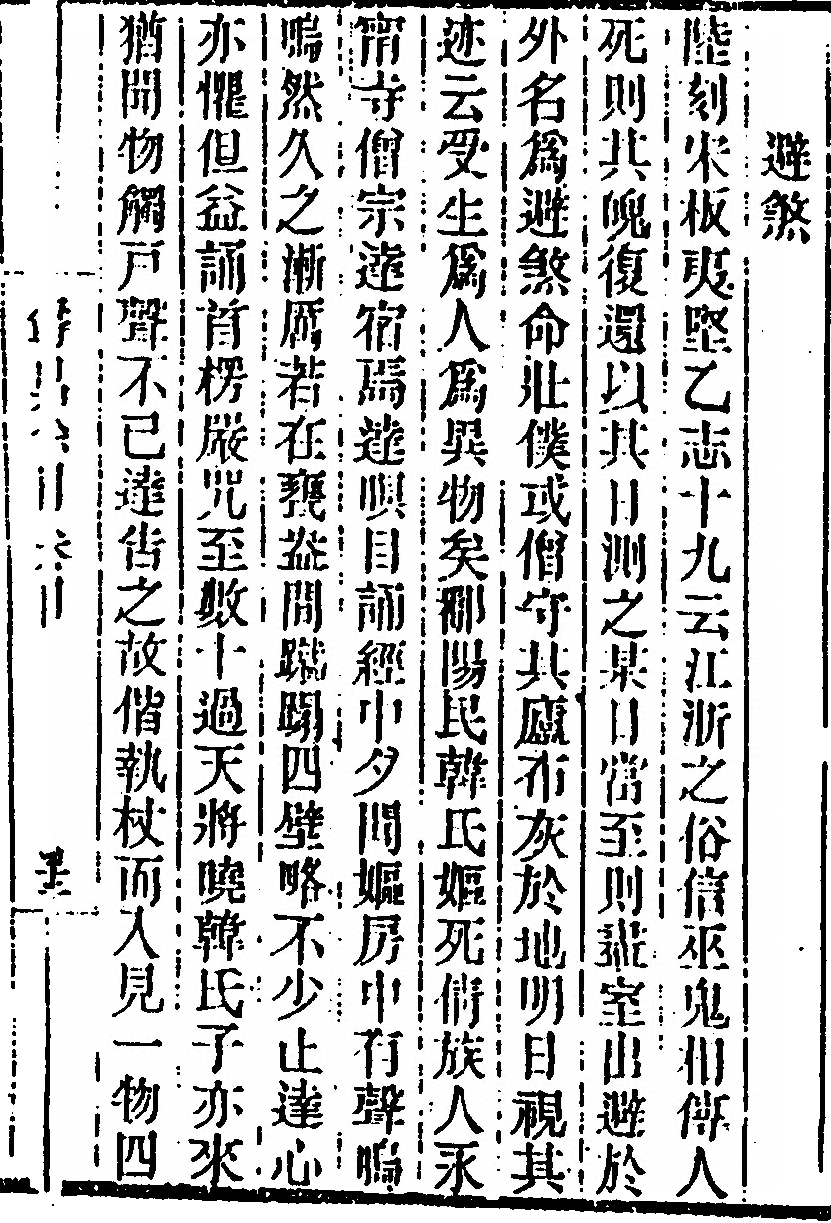 避煞
陸刻宋板夷堅乙志十九云江浙之俗信巫鬼相傳人
死則其魄復還以其日測之某日當至則盡室出避於
外名爲避煞命壯僕或僧守其廬布灰於地明日視其
迹云受生爲人爲異物矣鄱陽民韓氏嫗死倩族人永
甯寺僧宗達宿焉達瞑目誦經中夕聞嫗房中有聲嗚
嗚然久之漸厲若在甕盎間蹴蹋四壁略不少止達心
亦懼但益誦首楞嚴咒至數十過天將曉韓氏子亦來
猶聞物觸戶聲不已達告之故偕執杖而入見一物四